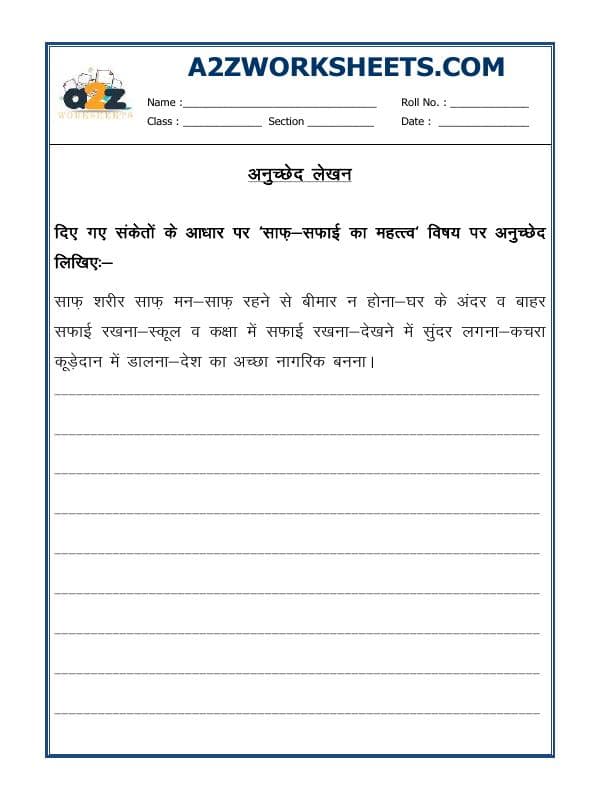 A2ZWORKSHEETS.COM
a2z
WORKSHEETS
Name :______________________________ Roll No. : ____________
Class : ____________ Section __________ Date : ______________
अनुच्छेद लेखन
दिए गए संकेतों के आधार पर 'साफ़–सफाई का महत्त्व' विषय पर अनुच्छेद
लिखिए:–
साफ़ शरीर साफ़ मन–साफ़ रहने से बीमार न होना–घर के अंदर व बाहर
सफाई रखना–स्कूल व कक्षा में सफाई रखना–देखने में सुंदर लगना–कचरा
कूड़ेदान में डालना–देश का अच्छा नागरिक बनना।